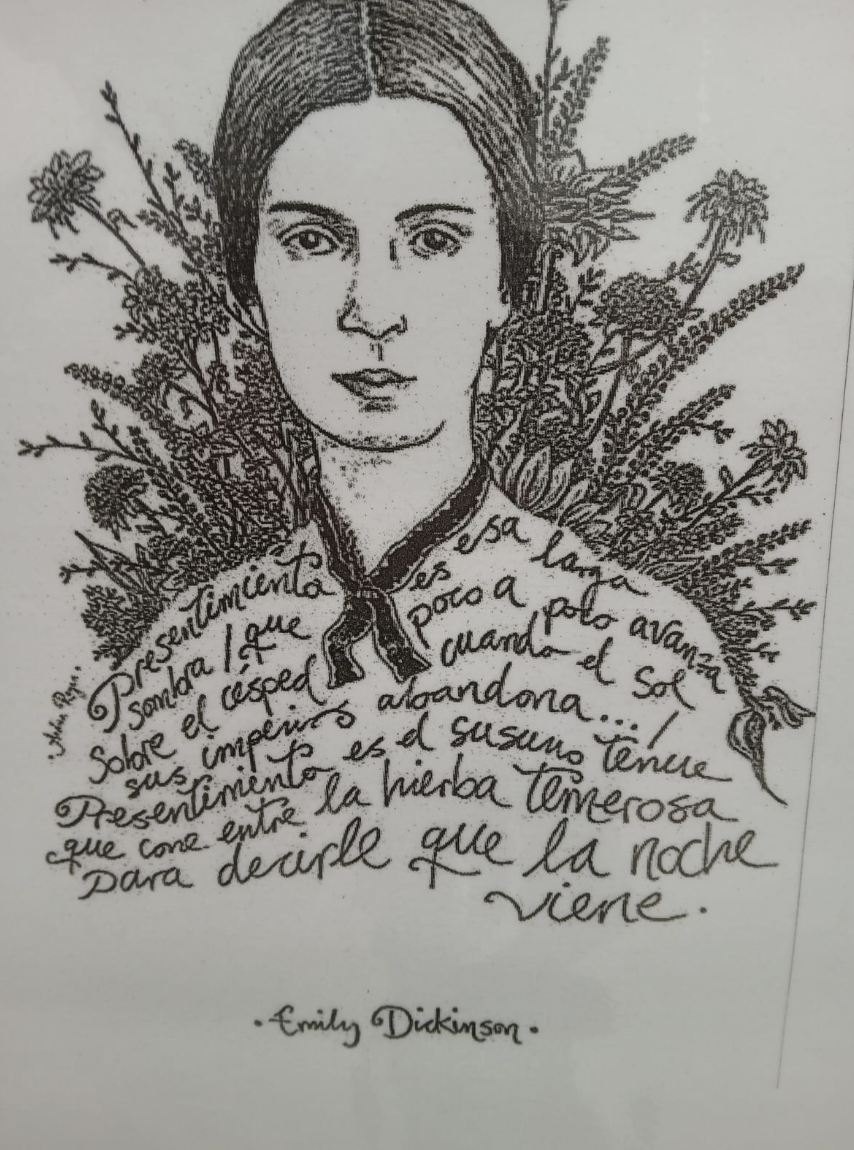 Presentimiento es esa larga
sombra / que poco a poco avanza
sobre el césped cuando el sol
sus imperios abandona... /
Presentimiento es el susurro tenue
que corre entre la hierba temerosa
para decirle que la noche
viene.
· Emily Dickinson ·